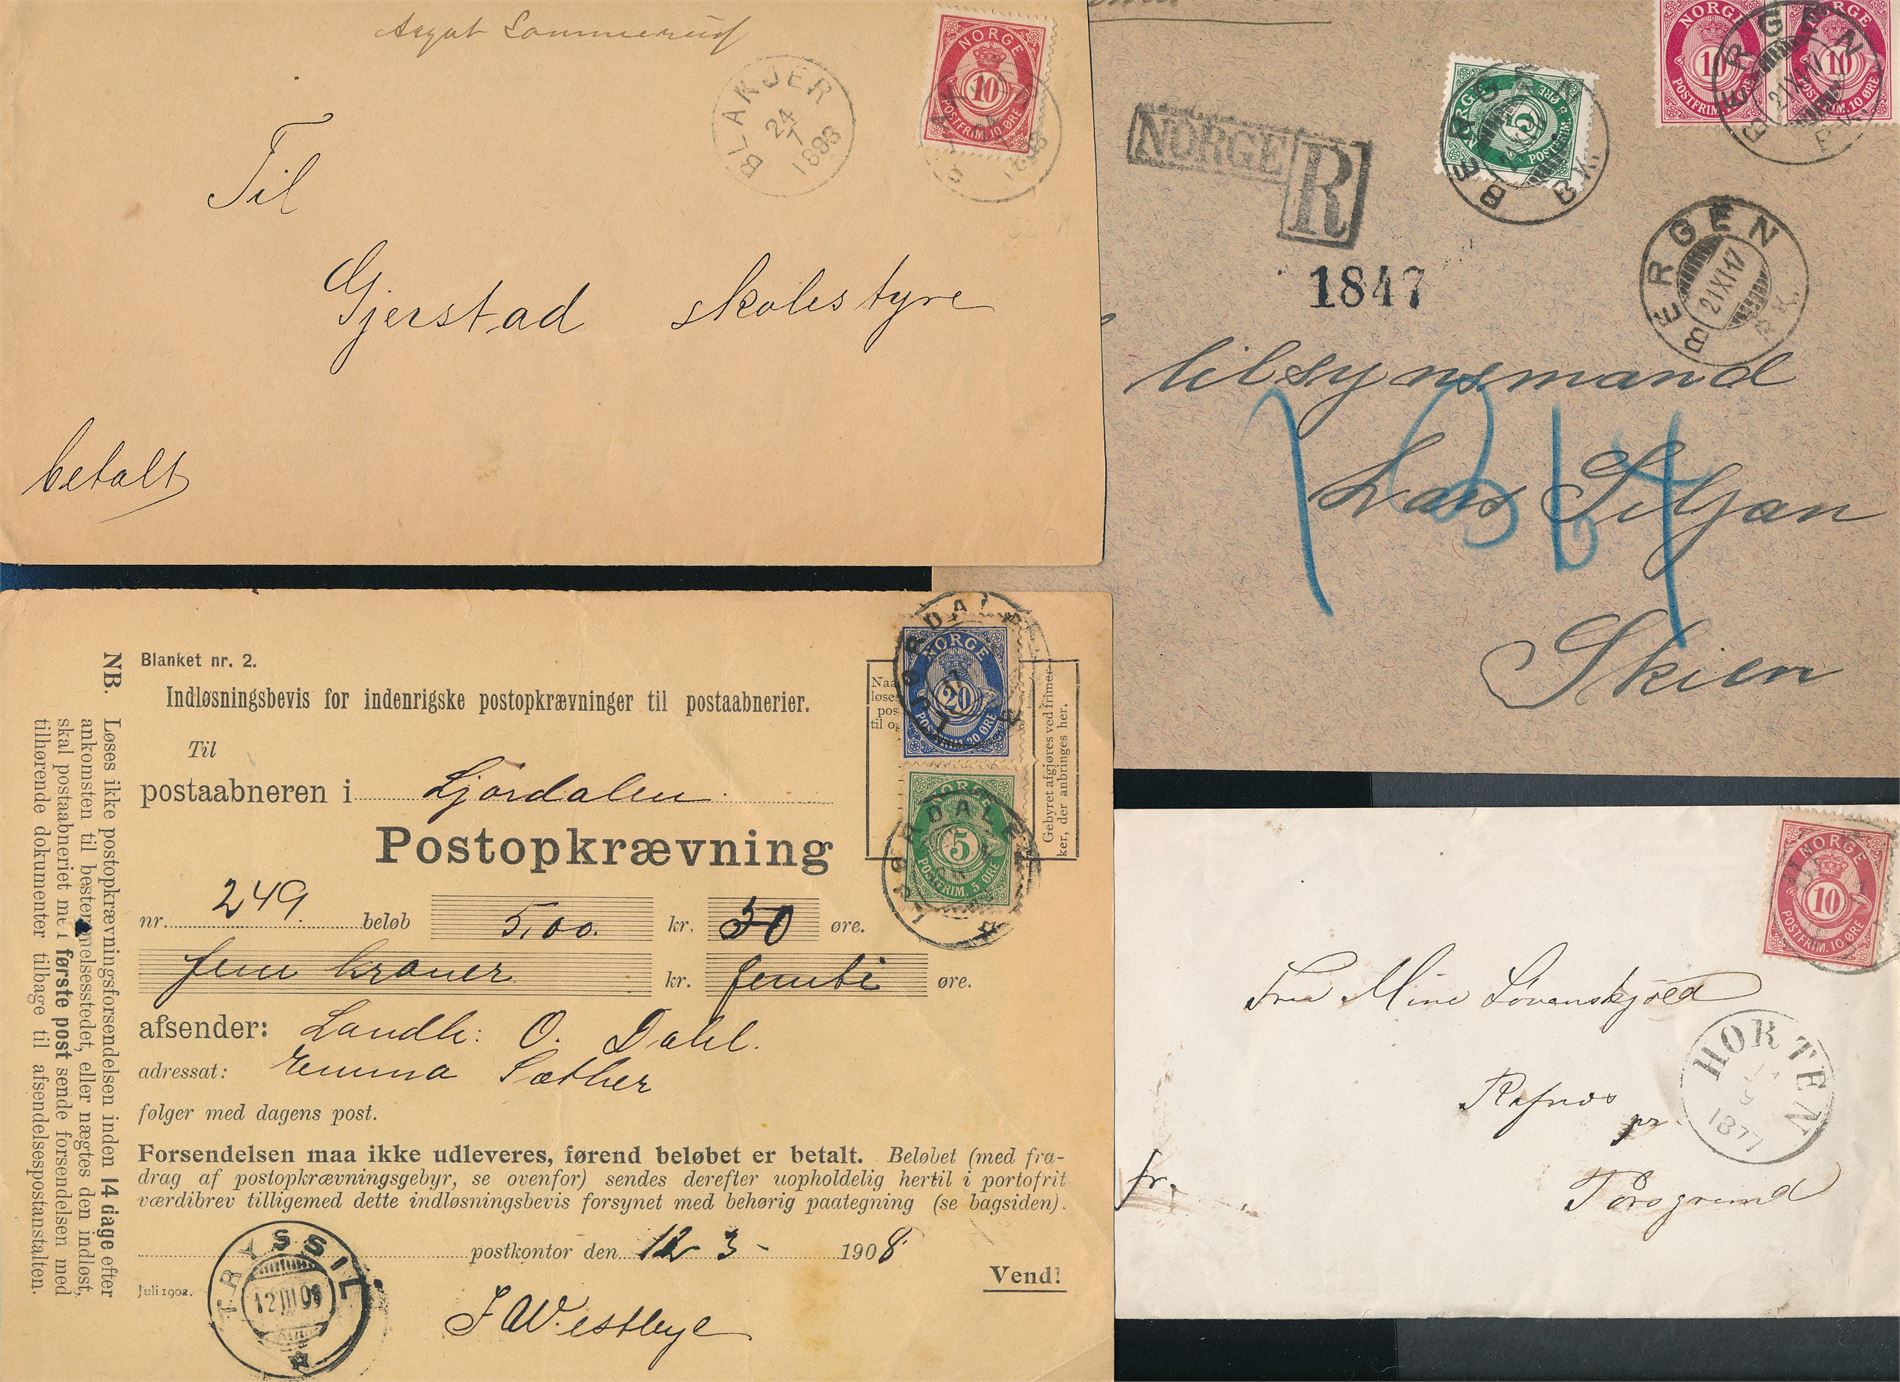 Aagot Sommerud
NORGE
10
POSTFRIM. 10 ØRE
BLAKJER
24
7
1893
Til
Gjerstad skolestyre
betalt
NORGE
10
POSTFRIM. 10 ØRE
NORGE
10
POSTFRIM. 10 ØRE
BERGEN
21 XI 17
B.K.
NORGE
5
POSTFRIM. 5 ØRE
BERGEN
B.K.
NORGE R
1847
BERGEN
21 XI 17
B.K.
tilsynsmand
Lars Siljan
Skien
NB. Løses ikke postopkrævningsforsendelsen inden 14 dage efter
ankomsten til bestemmelsesstedet, eller nægtes den indløst,
skal postaabneriet med første post sende forsendelsen med
tilhørende dokumenter tilbage til afsendelsespostanstalten.
Blanket nr. 2.
Indløsningsbevis for indenrigske postopkrævninger til postaabnerier.
Til
postaabneren i Ljørdalen
Postopkrævning
nr. 249. beløb 5,00. kr. 50 øre.
fem kroner kr. femti øre.
afsender: Landh: O. Dahl.
adressat: Emma Sæther
følger med dagens post.
Forsendelsen maa ikke udleveres, førend beløbet er betalt. Beløbet (med fra-
drag af postopkrævningsgebyr, se ovenfor) sendes derefter uopholdelig hertil i portofrit
værdibrev tilligemed dette indløsningsbevis forsynet med behørig paategning (se bagsiden).
postkontor den 12-3- 1908
Vend!
Juli 1902.
TRYSSIL
12 III 08
J W Vestbye
NORGE
20
POSTFRIM. 20 ØRE
NORGE
5
POSTFRIM. 5 ØRE
LJØRDALEN
Gebyret afgjøres ved frimer-
ker, der anbringes her.
NORGE
10
POSTFRIM. 10 ØRE
Fru Mine Løvenskjold
HORTEN
1877
Rafnøs
pr.
Porsgrund
fr.